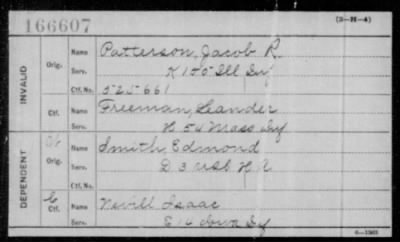 166607 (3-H-A)
INVALID Orig. Name Patterson, Jacob R.
Serv. K 155 Ill Inf
Ctf. No. 525661
Ctf. Name Freeman, Leander
Serv. H 54 Mass Inf
DEPENDENT Orig. Name Smith, Edmond
Serv. D 3 USC H A
Ctf. No.
Ctf. Name Nevill Isaac
Serv. E 14 Iowa If